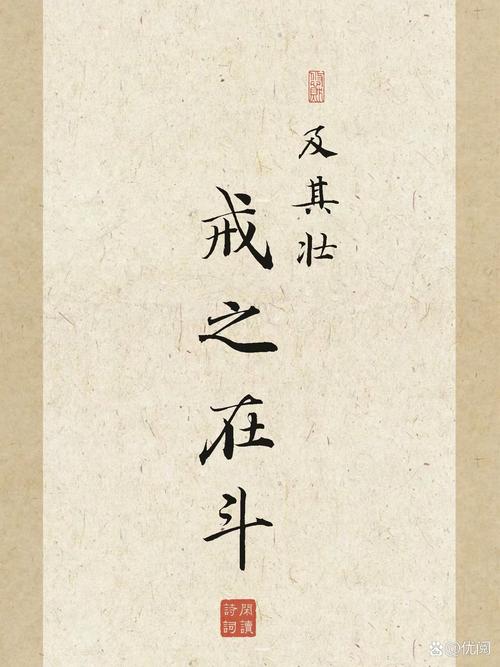 及其壮
戒之在斗
閑讀
詩詞
@优阅